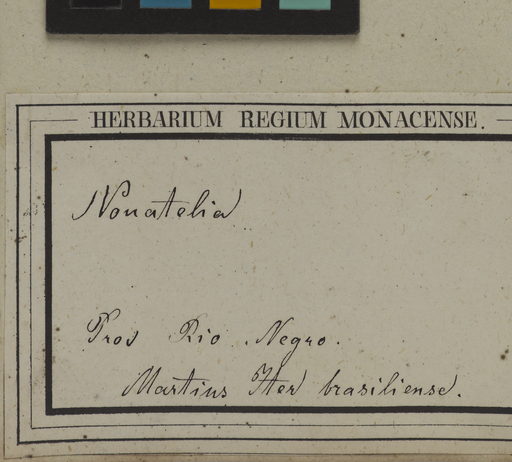 HERBARIUM REGIUM MONACENSE.
Nonatelia
Prov Rio Negro.
Martius Iter brasiliense.